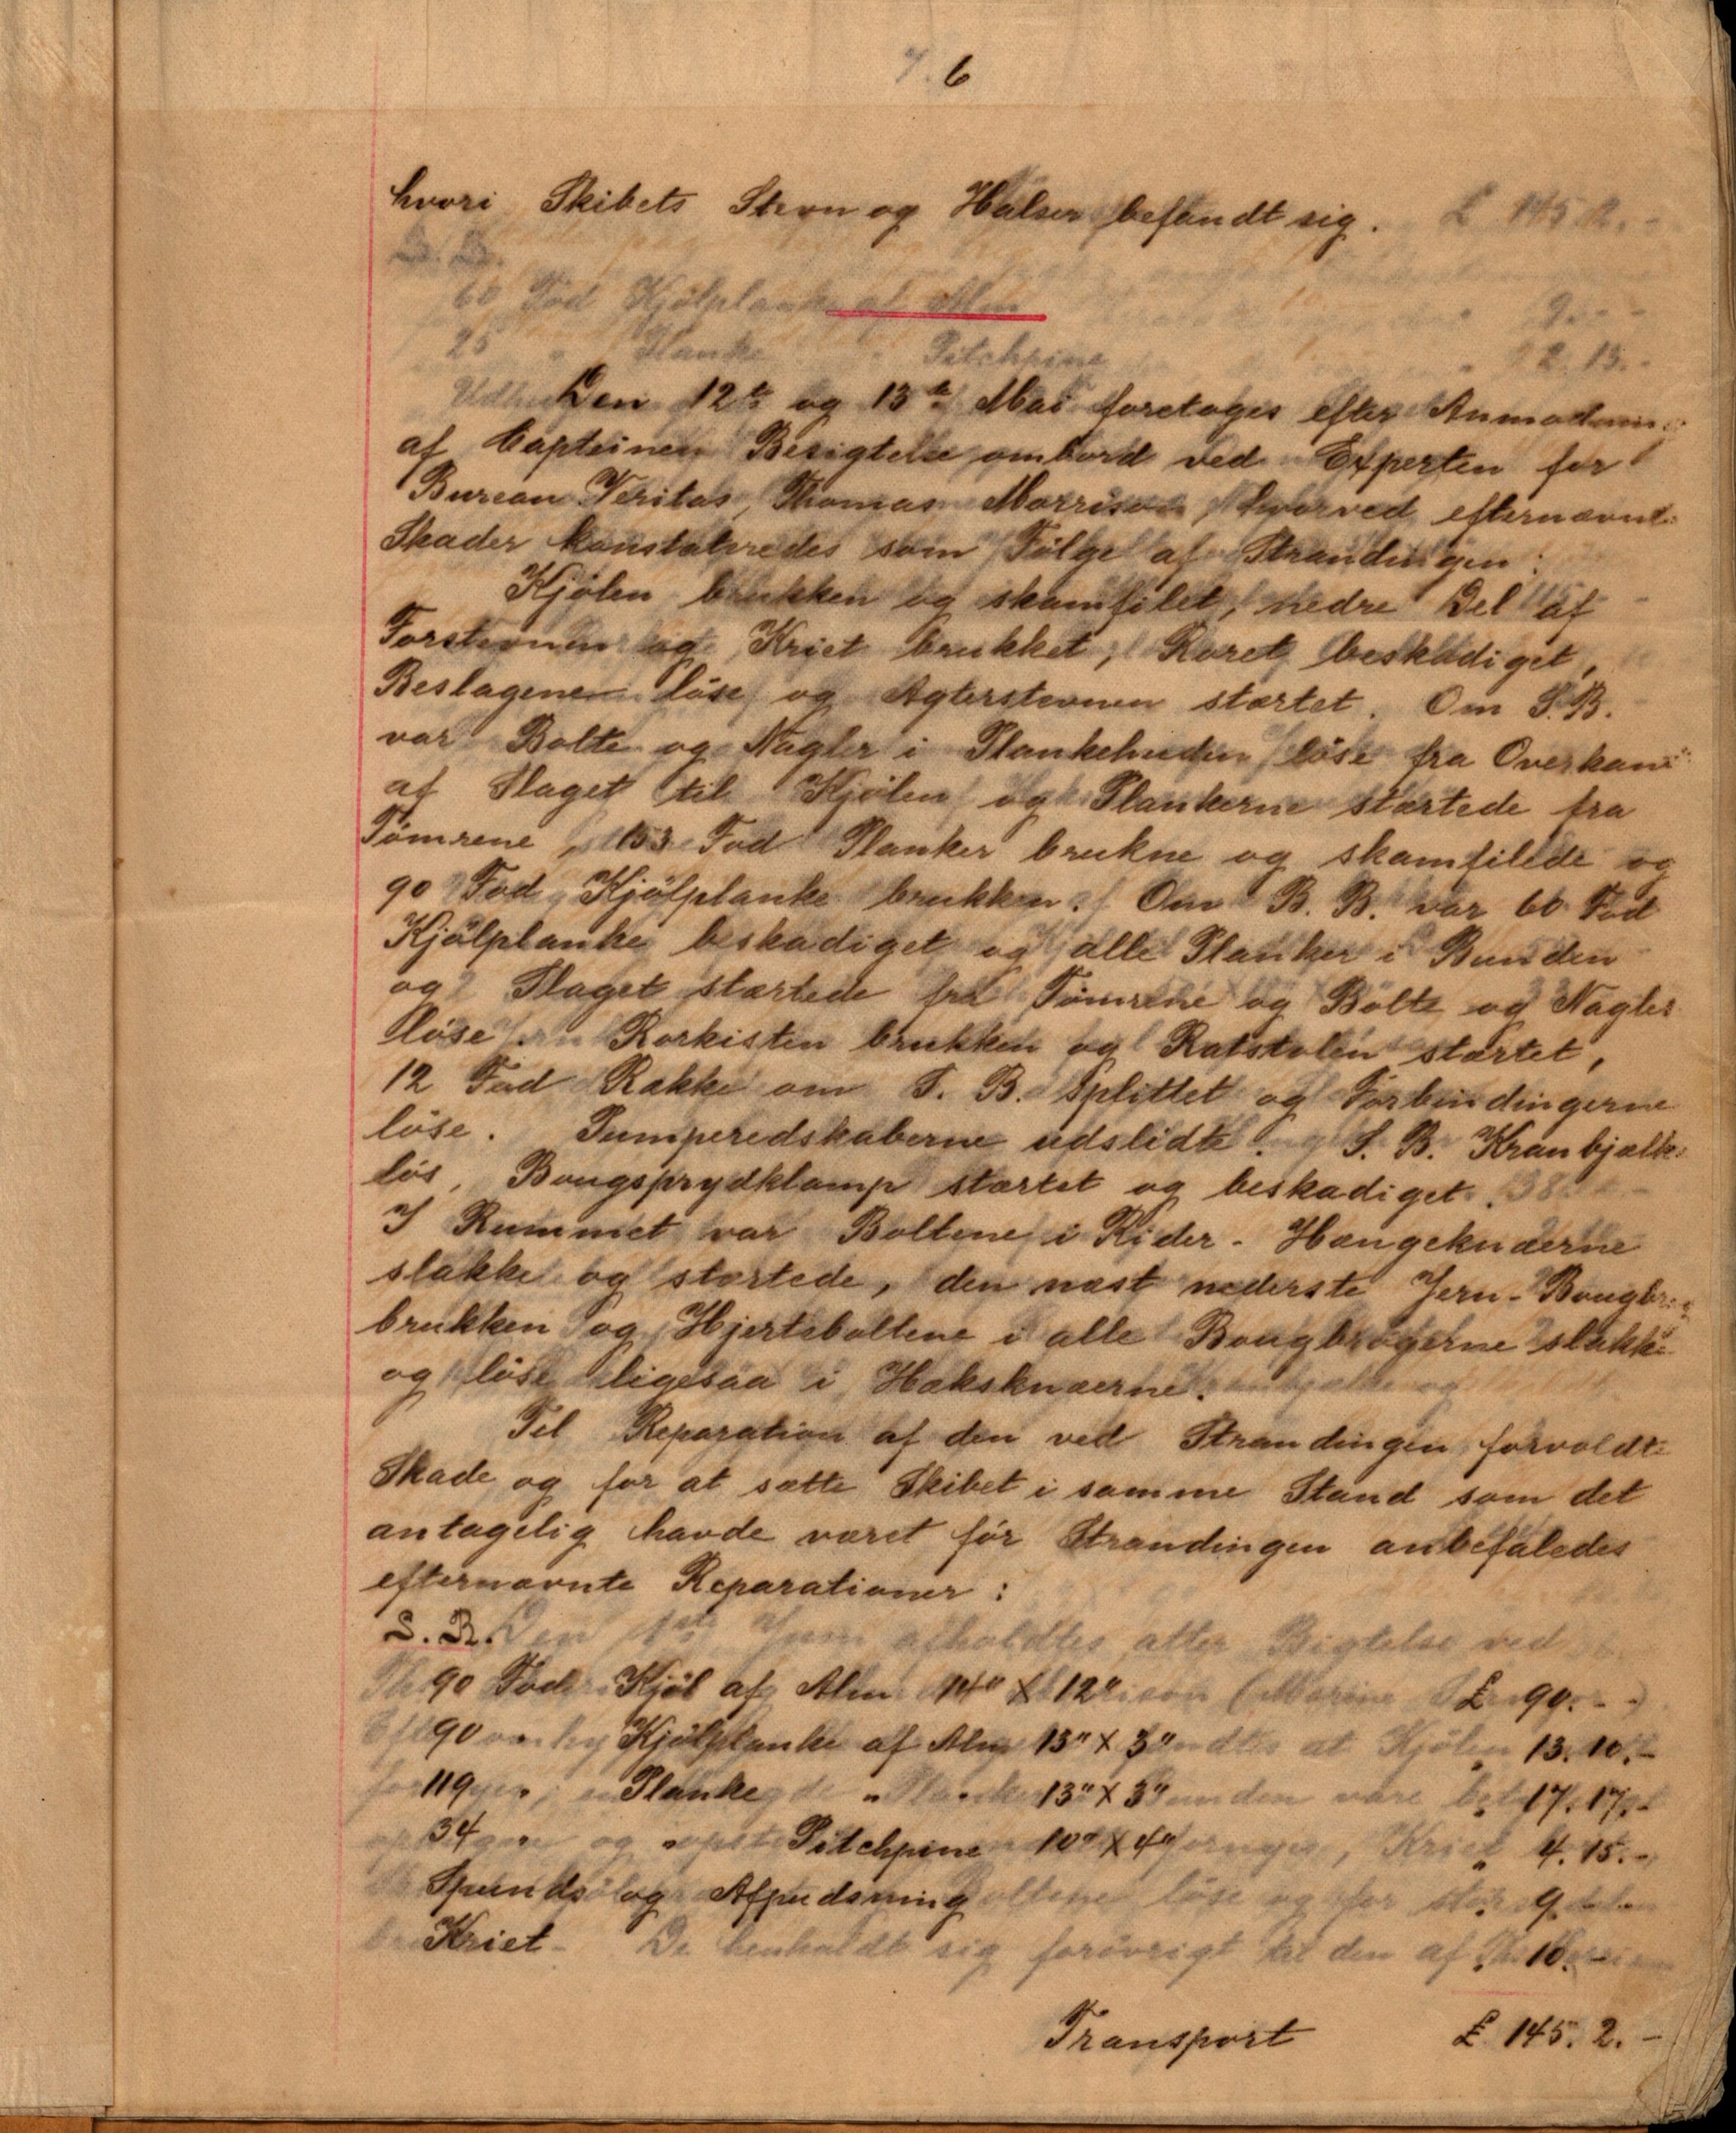 6
hvori Skibets Stevn og Halser befandt sig.
Den 12te og 13de Mai foretoges efter Anmodning
af Capteinen Besigtelse ombord ved Experten for
Bureau Veritas, Thomas Morrison, hvorved efternævnte
Skader konstateredes som Følge af Strandingen:
Kjølen brukken og skamfilet, nedre Del af
Forstevnen og Kriet brukket, Roret beskadiget,
Beslagene løse og Agterstevnen stærtet. Om S.B.
var Bolte og Nagler i Plankehuden løse fra Overkant
af Slaget til Kjølen og Plankerne stærtede fra
Tømrene, 153 Fod Planker brukne og skamfilede og
90 Fod Kjølplanke brukken. Om B. B. var 60 Fod
Kjølplanke beskadiget og alle Planker i Bunden
og Slaget stærtede fra Tømrene og Bolte og Nagler
løse. Rorkisten brukken og Ratstolen stærtet,
12 Fod Række om S. B. splittet og Forbindingerne
løse. Pumperedskaberne udslidte. S. B. Kranbjælke
løs, Bougsprydklamp stærtet og beskadiget.
I Rummet var Boltene i Rider- Hængeknæerne
slakke og stærtede, den næst nederste Jern-Bougbr
brukken og Hjerteboltene i alle Bougbrogerne slakke
og løse ligesaa i Hæksknæerne.
Til Reparation af den ved Strandingen forvoldte
Skade og for at sætte Skibet i samme Stand som det
antagelig havde været før Strandingen anbefaledes
efternævnte Reparationer:
S. B.
90 Fod Kjøl af Alm 14" X 12" £ 90. - -
90 " Kjølplanke af Alm 13" X 3" " 13. 10. -
119 " Planke " " 13" X 3" " 17. 17. -
34 " " Pitchpine 10" X 4" " 4. 15. -
Spunds og Afpudsning " 9. - -
Kriet " 10. - -
Transport £ 145. 2. -